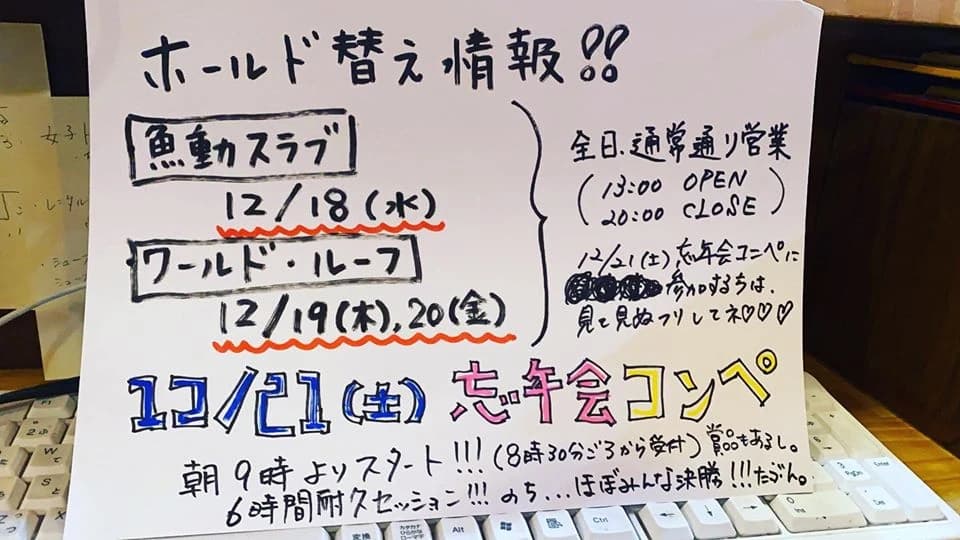 ホールド替え情報!!
魚動スラブ
12/18(水)
ワールド・ルーフ
12/19(木),20(金)
全日、通常通り営業
(13:00 OPEN
20:00 CLOSE)
12/21(土)忘年会コンペに
参加するちは、
見て見ぬフリしてネ♡♡♡
12/21(土)忘年会コンペ
朝9時よりスタート!!!(8時30分ごろから受付)賞品もあるし。
6時間耐久セッション!!!のち...ほぼみんな決勝!!!たぶん。
女子
レンタル
シューズ
変換
カタカナ
ひらがな
ローマ字
Alt
Ctrl
Enter
3
PgDn
0
Ins
Del
W